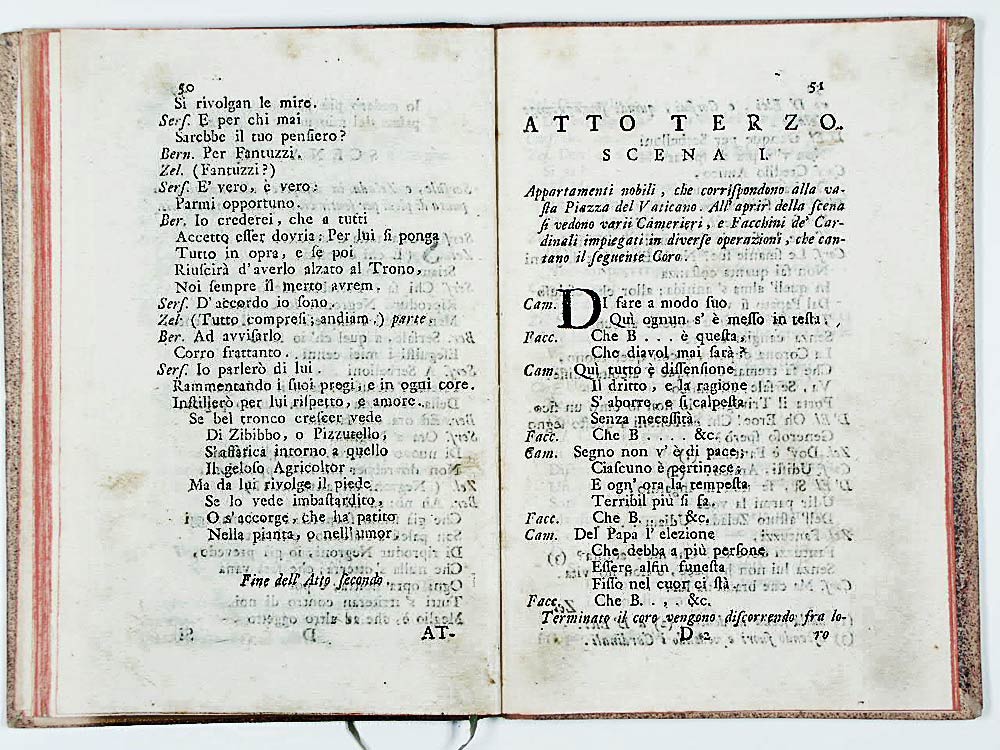 50
Si rivolgan le mire.
Serſ. E per chi mai
Sarebbe il tuo penſiero?
Bern. Per Fantuzzi.
Zel. (Fantuzzi?)
Serſ. E' vero, è vero:
Parmi opportuno.
Ber. Io crederei, che a tutti
Accetto eſſer dovria: Per lui ſi ponga
Tutto in opra, e ſe poi
Riuſcirà d'averlo alzato al Trono,
Noi ſempre il merto avrem.
Serſ. D'accordo io ſono.
Zel. (Tutto compreſi; andiam.) parte
Ber. Ad avviſarlo
Corro frattanto.
Serſ. Io parlerò di lui.
Rammentando i ſuoi pregi, e in ogni core.
Inſtillerò per lui riſpetto, e amore.
Se bel tronco creſcer vede
Di Zibibbo, o Pizzutello,
S'affatica intorno a quello
Il geloſo Agricoltor.
Ma da lui rivolge il piede
Se lo vede imbaſtardito,
O s'accorge, che ha patito
Nella pianta, o nell'umor.
Fine dell' Atto ſecondo
AT-
51
ATTO TERZO.
SCENA I.
Appartamenti nobili, che corriſpondono alla va-
ſta Piazza del Vaticano. All' aprir della ſcena
ſi vedono varii Camerieri, e Facchini de' Car-
dinali impiegati in diverſe operazioni, che can-
tano il ſeguente Coro.
Cam. DI fare a modo ſuo
Quì ognun s' è meſſo in teſta.
Facc. Che B . . . è queſta,
Che diavol mai ſarà?
Cam. Quì tutto è diſſenſione
Il dritto, e la ragione
S' aborre, e ſi calpeſta
Senza neceſſità.
Facc. Che B . . . . &c.
Cam. Segno non v' è di pace;
Ciaſcuno è pertinace,
E ogn' ora la tempeſta
Terribil più ſi fa.
Facc. Che B. . . . &c.
Cam. Del Papa l' elezione
Che debba a più perſone,
Eſſere alfin funeſta
Fiſſo nel cuor ci ſtà.
Facc. Che B. . , . &c.
Terminato il coro vengono diſcorrendo fra lo-
D 2 ro